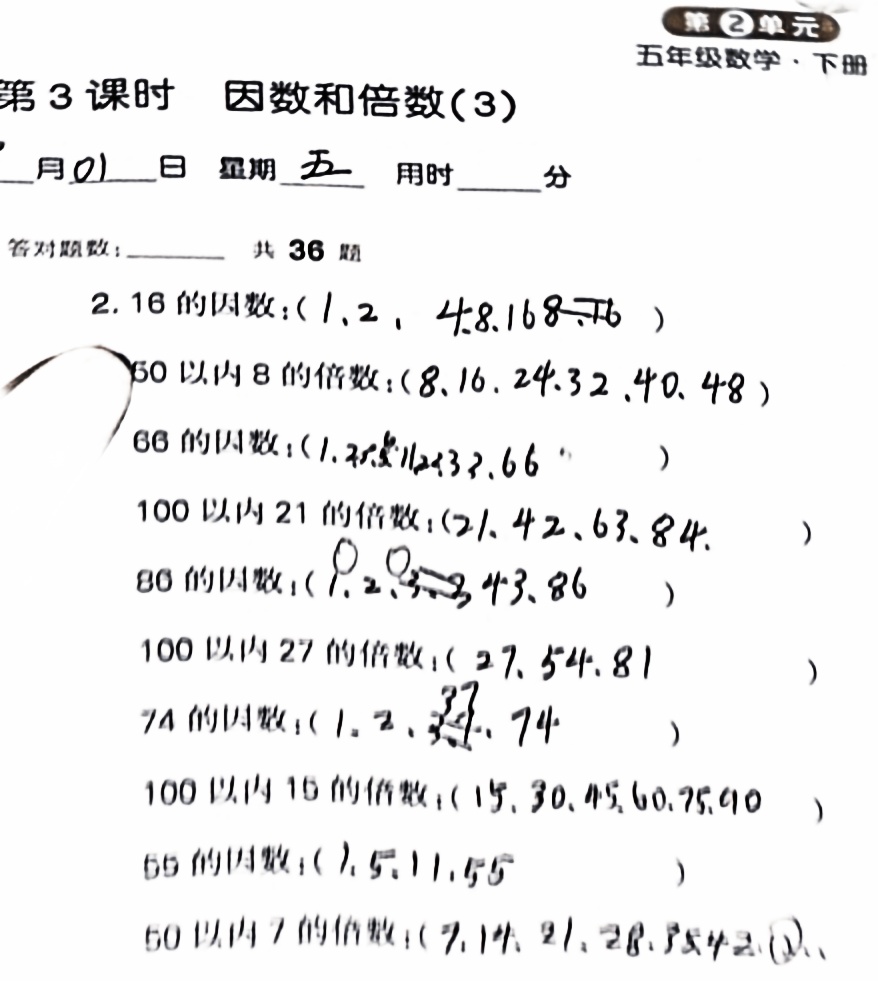 第2单元
五年级数学·下册
第3课时 因数和倍数(3)
月01日 星期五 用时 分
答对题数: 共36题
2. 16的因数:(1、2、4.8.16 )
50以内8的倍数:(8、16.24.32.40、48)
66的因数:(1. 33.66 )
100以内21的倍数:(21、42、63、84. )
86的因数:(1.2、43、86 )
100以内27的倍数:(27、54.81 )
74的因数:(1.2、37、74 )
100以内15的倍数:(15、30、45.60.75.90 )
55的因数:(1.5.11.55 )
50以内7的倍数:(7.14、21、28.35 42.